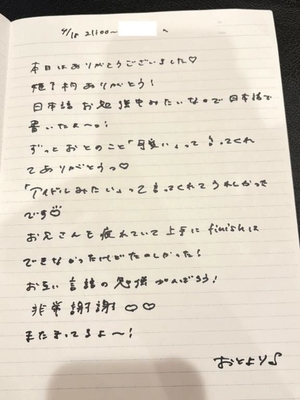 4/18 21:00～
本日はありがとうございました♡
予約ありがとう!
日本語お勉強中みたいなので日本語で
書いたよ〜。!
ずっとおとのこと「可愛い」って言ってくれ
てありがとうっ♡
「アイドルみたい」って言ってくれてうれしかった
です
お兄さんも疲れていて上手にfinishは
できなかったけどたのしかった!
お互い言語の勉強がんばろう!
非常謝謝♡♡
またまってるよ〜!
おとより♪